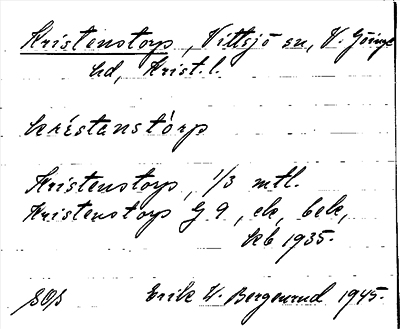 Kristenstorp, Vittsjö sn, V. Göinge
hd, Krist. l.
kréstanstòrp
Kristenstorp, 1/3 mtl.
Kristenstorp G 9, ek, bek,
kb 1935.
Erik W. Bergenrud 1945.